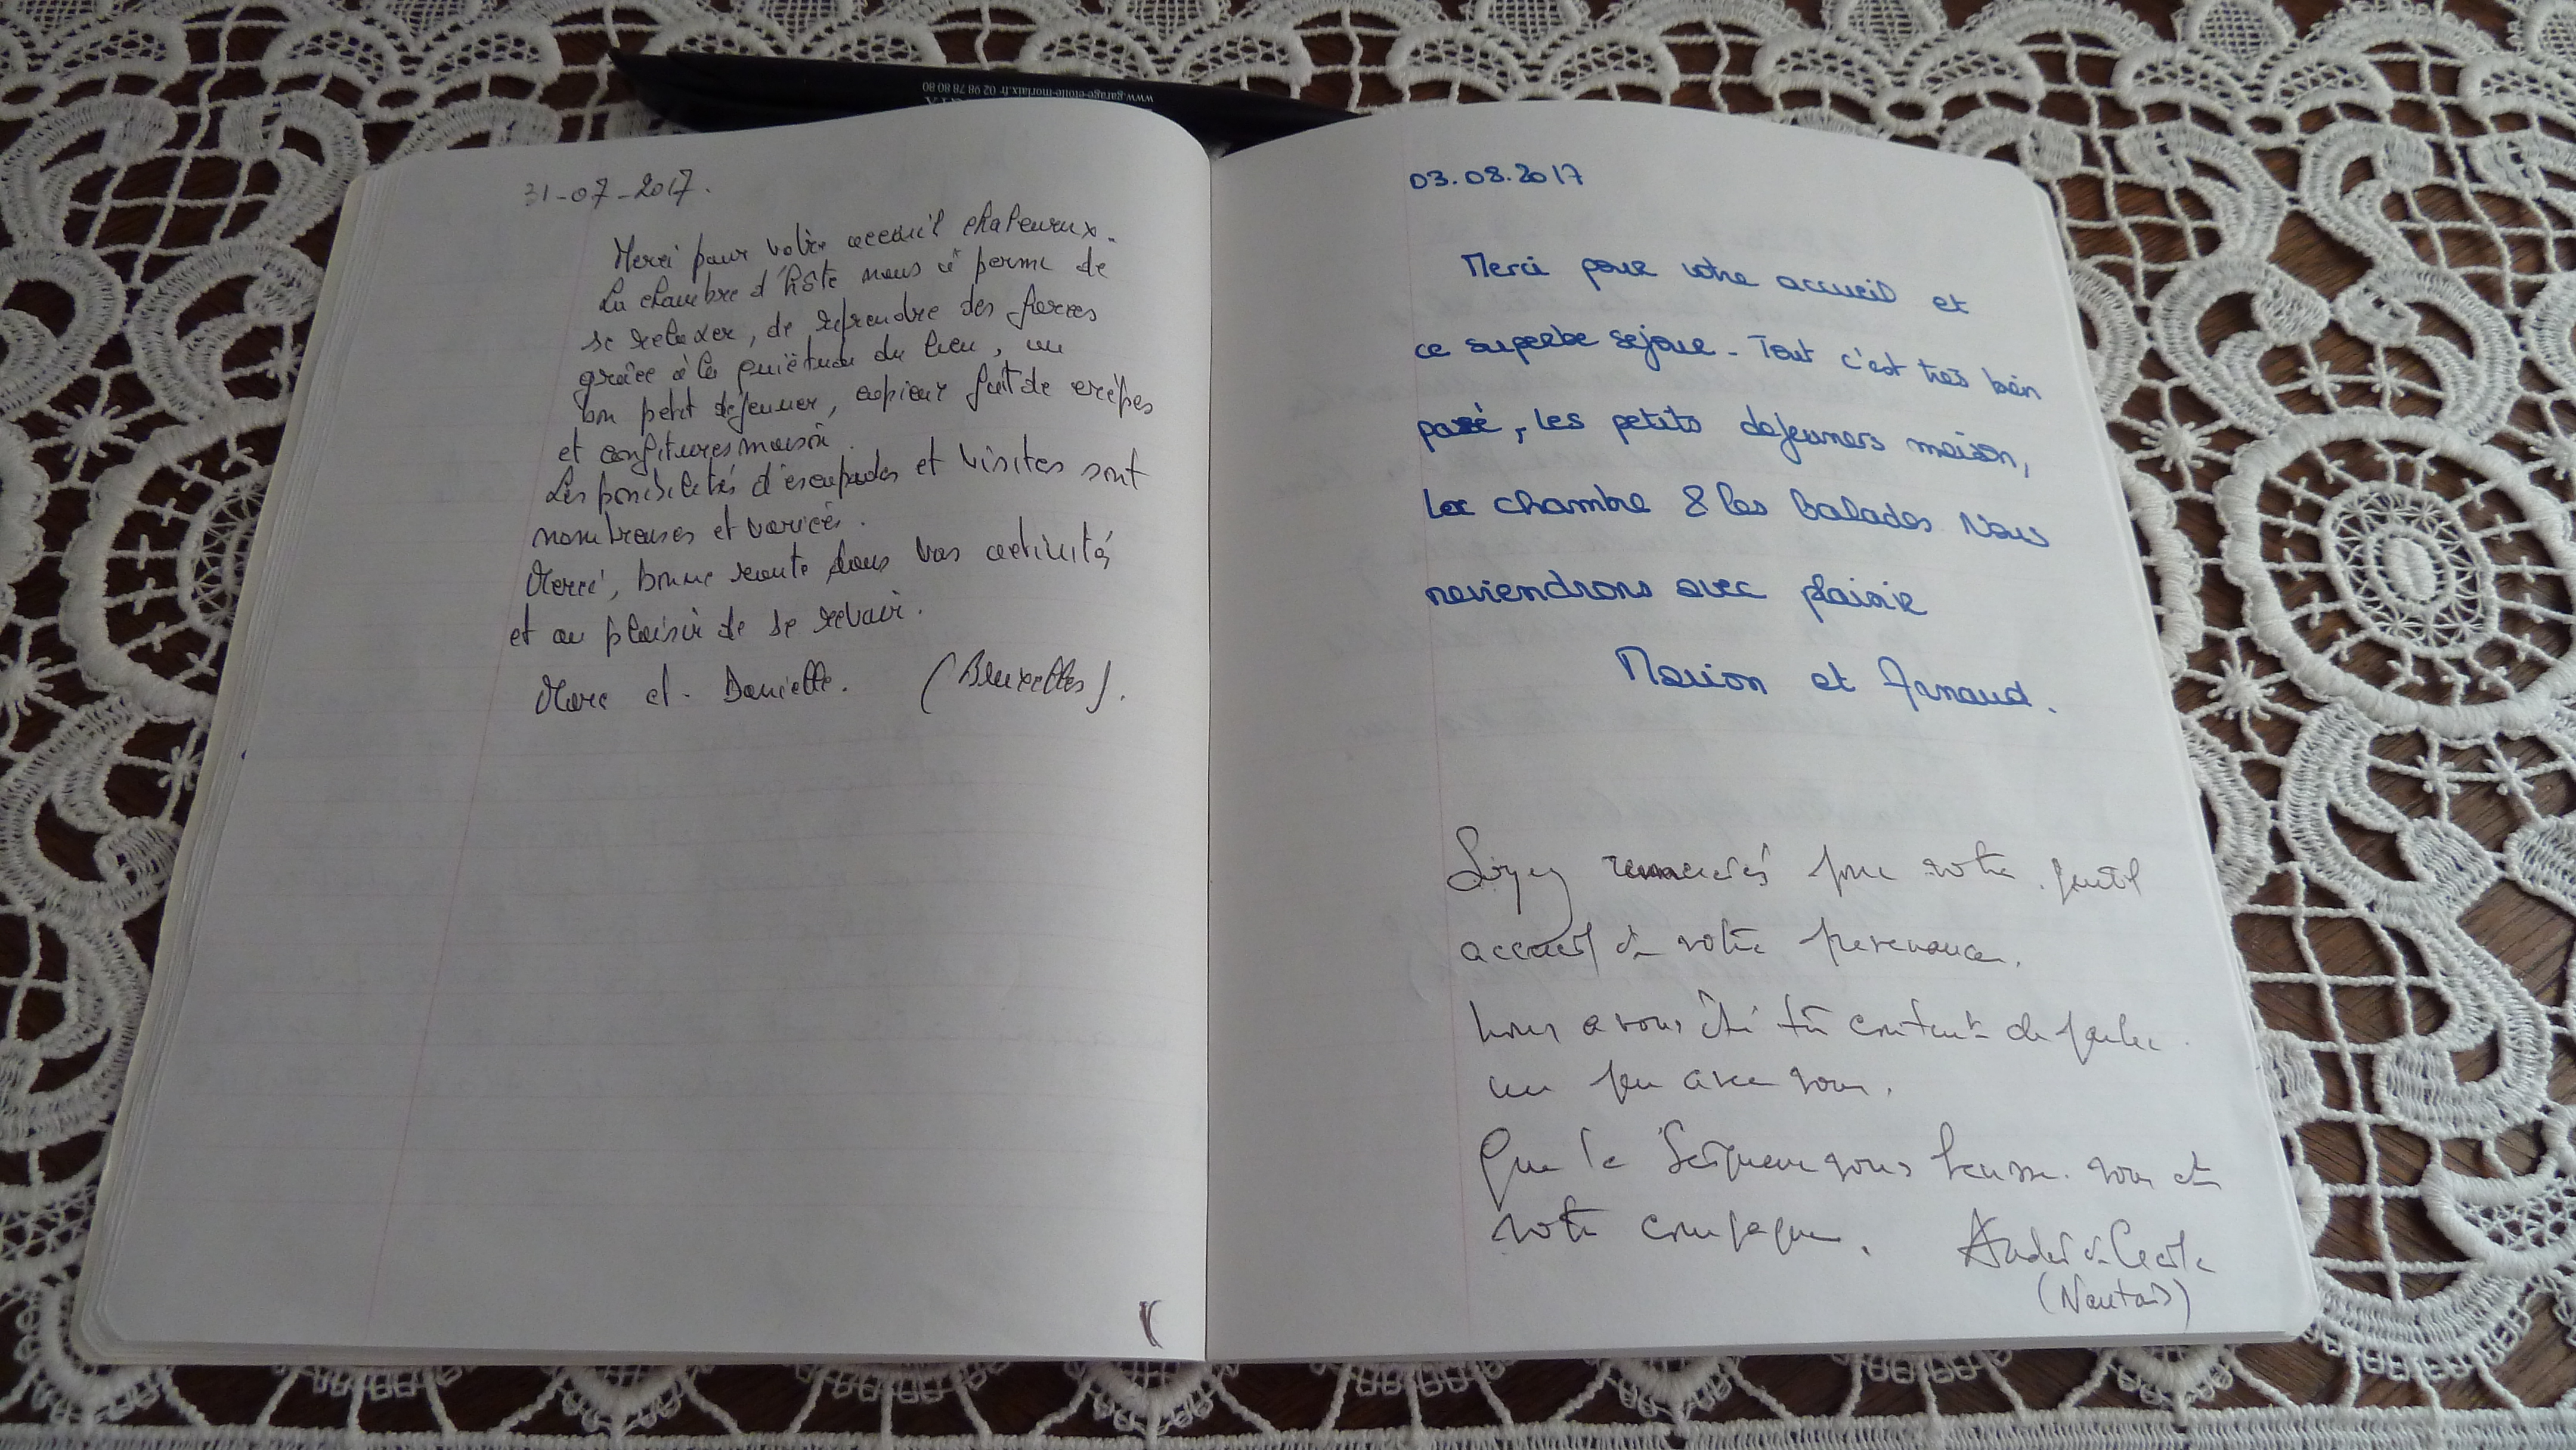 www.garage-etoile-morlaix.fr 02 98 78 80 80
31-07-2017.
Merci pour votre accueil chaleureux.
La chambre d'hôte nous a permi de
se relaxer, de reprendre des forces
grâce à la quiètude du lieu, un
bon petit déjeuner, copieux fait de crèpes
et confitures maison.
Les possibilités d'escapades et visites sont
nombreuses et variées.
Merci, bonne route dans vos activités
et au plaisir de se revoir.
Marc et Danielle. (Bruxelles).
03.08.2017
Merci pour votre accueil et
ce superbe sejour. Tout c'est très bien
passé, les petits dejeuners maison,
la chambre & les balades Nous
reviendrons avec plaisir
Marion et Arnaud.
Soyez remerciés pour votre gentil
accueil et votre prevenance.
Nous avons été très content de parler
un peu avec vous.
Que le Seigneur vous benisse vous et
votre compagne.
André et Cecile
(Nantais)